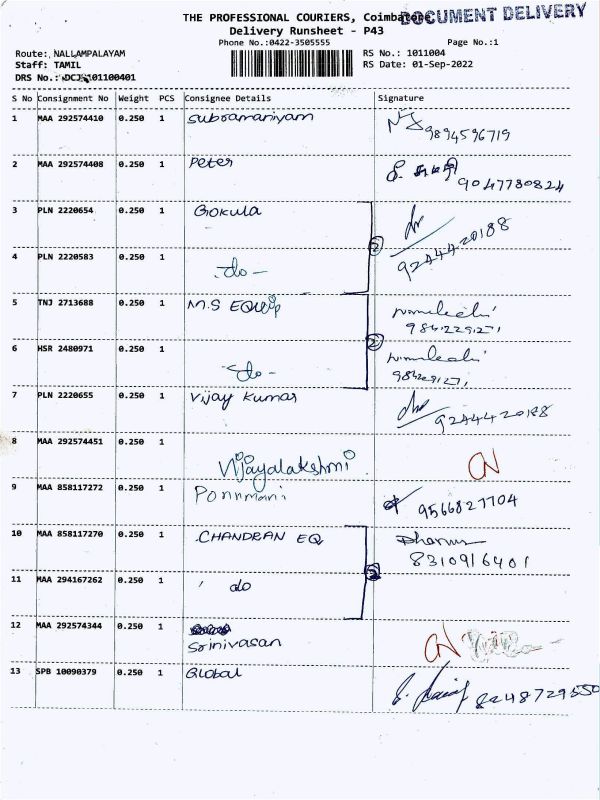 THE PROFESSIONAL COURIERS, Coimbatore
DOCUMENT DELIVERY
Delivery Runsheet - P43
Phone No.:0422-3505555 Page No.:1
Route: NALLAMPALAYAM RS No.: 1011004
Staff: TAMIL RS Date: 01-Sep-2022
DRS No.:
S No Consignment No Weight PCS Consignee Details Signature
1 MAA 292574410 0.250 1 Subramaniyam 9894596719
2 MAA 292574408 0.250 1 Peter 9047780824
3 PLN 2220654 0.250 1 Gokula
2 9244420188
4 PLN 2220583 0.250 1 -do-
5 TNJ 2713688 0.250 1 M.S EQUIP
2
6 HSR 2480971 0.250 1 -do-
7 PLN 2220655 0.250 1 Vijay Kumar 9244420188
8 MAA 292574451 0.250 1 Vijayalakshmi
9 MAA 858117272 0.250 1 Ponnmani 9566827704
10 MAA 858117270 0.250 1 CHANDRAN EQ 8310916401
11 MAA 294167262 0.250 1 do
12 MAA 292574344 0.250 1 Srinivasan
13 SPB 10090379 0.250 1 Global 8248729550